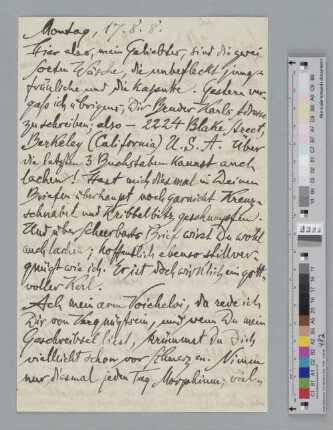 Montag, 17. 8. 8.
Hier also, mein Geliebter, sind die zwei
Sorten Wäsche, die unbefleckt jung-
fräuliche und die kaputte. Gestern ver-
gaß ich übrigens, Dir Bruder Karls Adresse
zu schreiben; also — 2224 Blake Street,
Berkeley (California) U. S. A. Über
die letzten 3 Buchstaben kannst auch
lachen! Hast mich diesmal in Deinen
Briefen überhaupt noch garnicht Kreuz-
schnabel und geschimpft.
Und über Scheerbarts Brief wirst Du wohl
auch lachen; hoffentlich ebenso stillver-
gnügt wie ich. Er ist doch wirklich ein gott-
voller Kerl.
Ach mein arm, da rede ich
Dir von Vergnügtsein, und wenn Du mein
Geschreibsel liest, krümmst du Dich
vielleicht schon vor Schmerzen. Nimm
nur diesmal jeden Tag Morphium; viel-